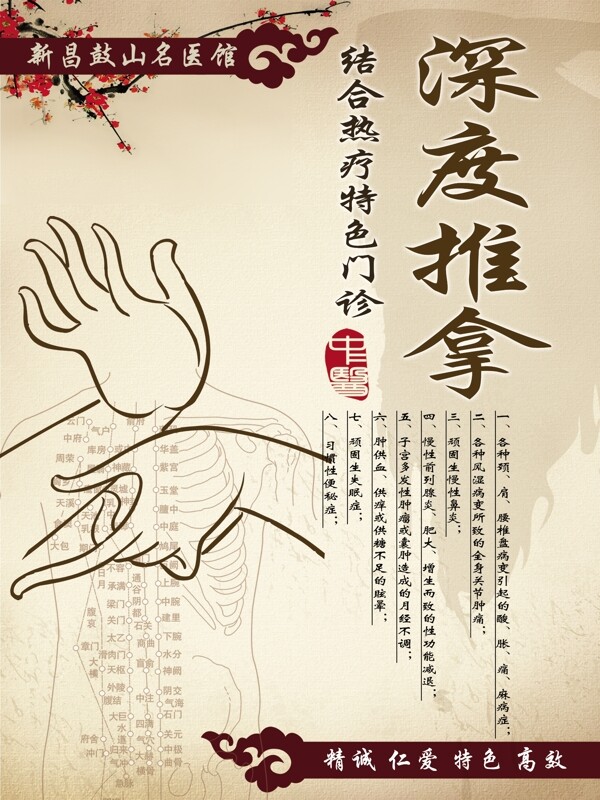 新昌鼓山名医馆
深度推拿
结合热疗特色门诊
中醫
一、各种颈、肩、腰椎盘病变引起的酸、胀、痛、麻病症；
二、各种风湿病变所致的全身关节肿痛；
三、顽固生慢性鼻炎；
四、慢性前列腺炎、肥大、增生而致的性功能减退；
五、子宫多发性肿瘤或囊肿造成的月经不调；
六、肿供血、供痒或供糖不足的眩晕；
七、顽固生失眠症；
八、习惯性便秘症；
云门
中府
气户
库房
周荣
俞府
神藏
天溪
大包
华盖
紫宫
玉堂
膻中
中庭
鸠尾
日月
不容
承满
梁门
关门
太乙
滑肉门
天枢
外陵
大巨
水道
归来
气冲
腹哀
章门
大横
腹结
府舍
冲门
通谷
阴都
石关
商曲
肓俞
中注
四满
气穴
大赫
横骨
上脘
中脘
建里
下脘
水分
神阙
阴交
气海
石门
关元
中极
曲骨
精诚 仁爱 特色 高效